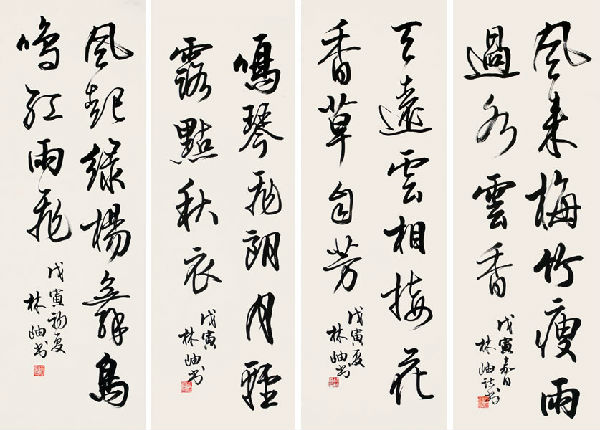 風來梅竹瘦雨
過水雲香
戊寅嘉日
林岫书
天遠雲相接花
香草自芳
戊寅夏
林岫书
鳴琴飛朗月輕
露點秋衣
戊寅
林岫书
風起綠楊舞鳥
鳴紅雨飛
戊寅初夏
林岫书